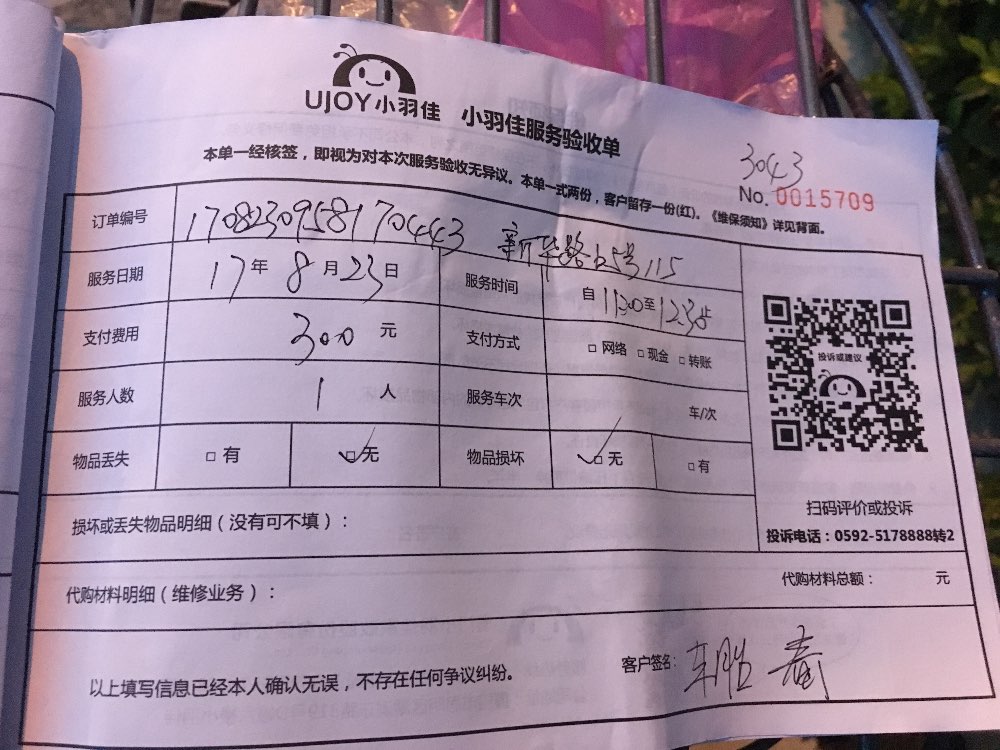 UJOY小羽佳 小羽佳服务验收单
3043
No. 0015709
本单一经核签，即视为对本次服务验收无异议。本单一式两份，客户留存一份(红)。《维保须知》详见背面。
订单编号 170823095817044443 新华路 号115
服务日期 17年 8月23日 服务时间 自 11:30至12:30止
支付费用 300 元 支付方式 □ 网络 □ 现金 □ 转账
服务人数 1 人 服务车次 车/次
物品丢失 □ 有 ☑无 物品损坏 ☑无 □ 有
投诉或建议
扫码评价或投诉
投诉电话：0592-5178888转2
损坏或丢失物品明细（没有可不填）：
代购材料明细（维修业务）： 代购材料总额： 元
以上填写信息已经本人确认无误，不存在任何争议纠纷。 客户签名：